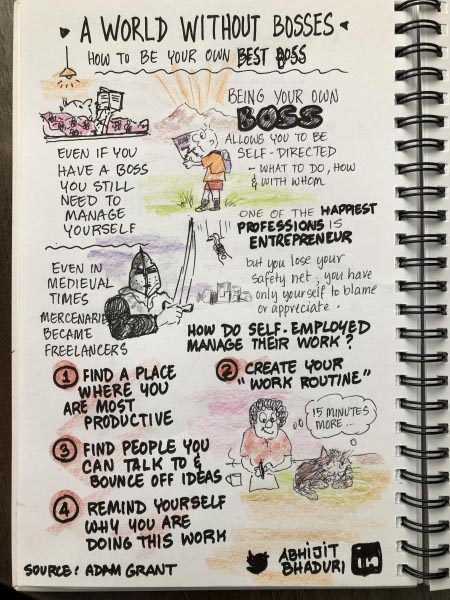 A WORLD WITHOUT BOSSES
HOW TO BE YOUR OWN BEST BOSS
BEING YOUR OWN
BOSS
ALLOWS YOU TO BE
SELF-DIRECTED
- WHAT TO DO, HOW
& WITH WHOM
EVEN IF YOU
HAVE A BOSS
YOU STILL
NEED TO
MANAGE
YOURSELF
ONE OF THE HAPPIEST
PROFESSIONS IS
ENTREPRENEUR
but you lose your
safety net, you have
only yourself to blame
or appreciate.
EVEN IN
MEDIEVAL
TIMES
MERCENARIES
BECAME
FREELANCERS
HOW DO SELF-EMPLOYED
MANAGE THEIR WORK?
1 FIND A PLACE
WHERE YOU
ARE MOST
PRODUCTIVE
2 CREATE YOUR
"WORK ROUTINE"
15 MINUTES
MORE...
3 FIND PEOPLE YOU
CAN TALK TO &
BOUNCE OFF IDEAS
4 REMIND YOURSELF
WHY YOU ARE
DOING THIS WORK
SOURCE: ADAM GRANT
ABHIJIT
BHADURI
in